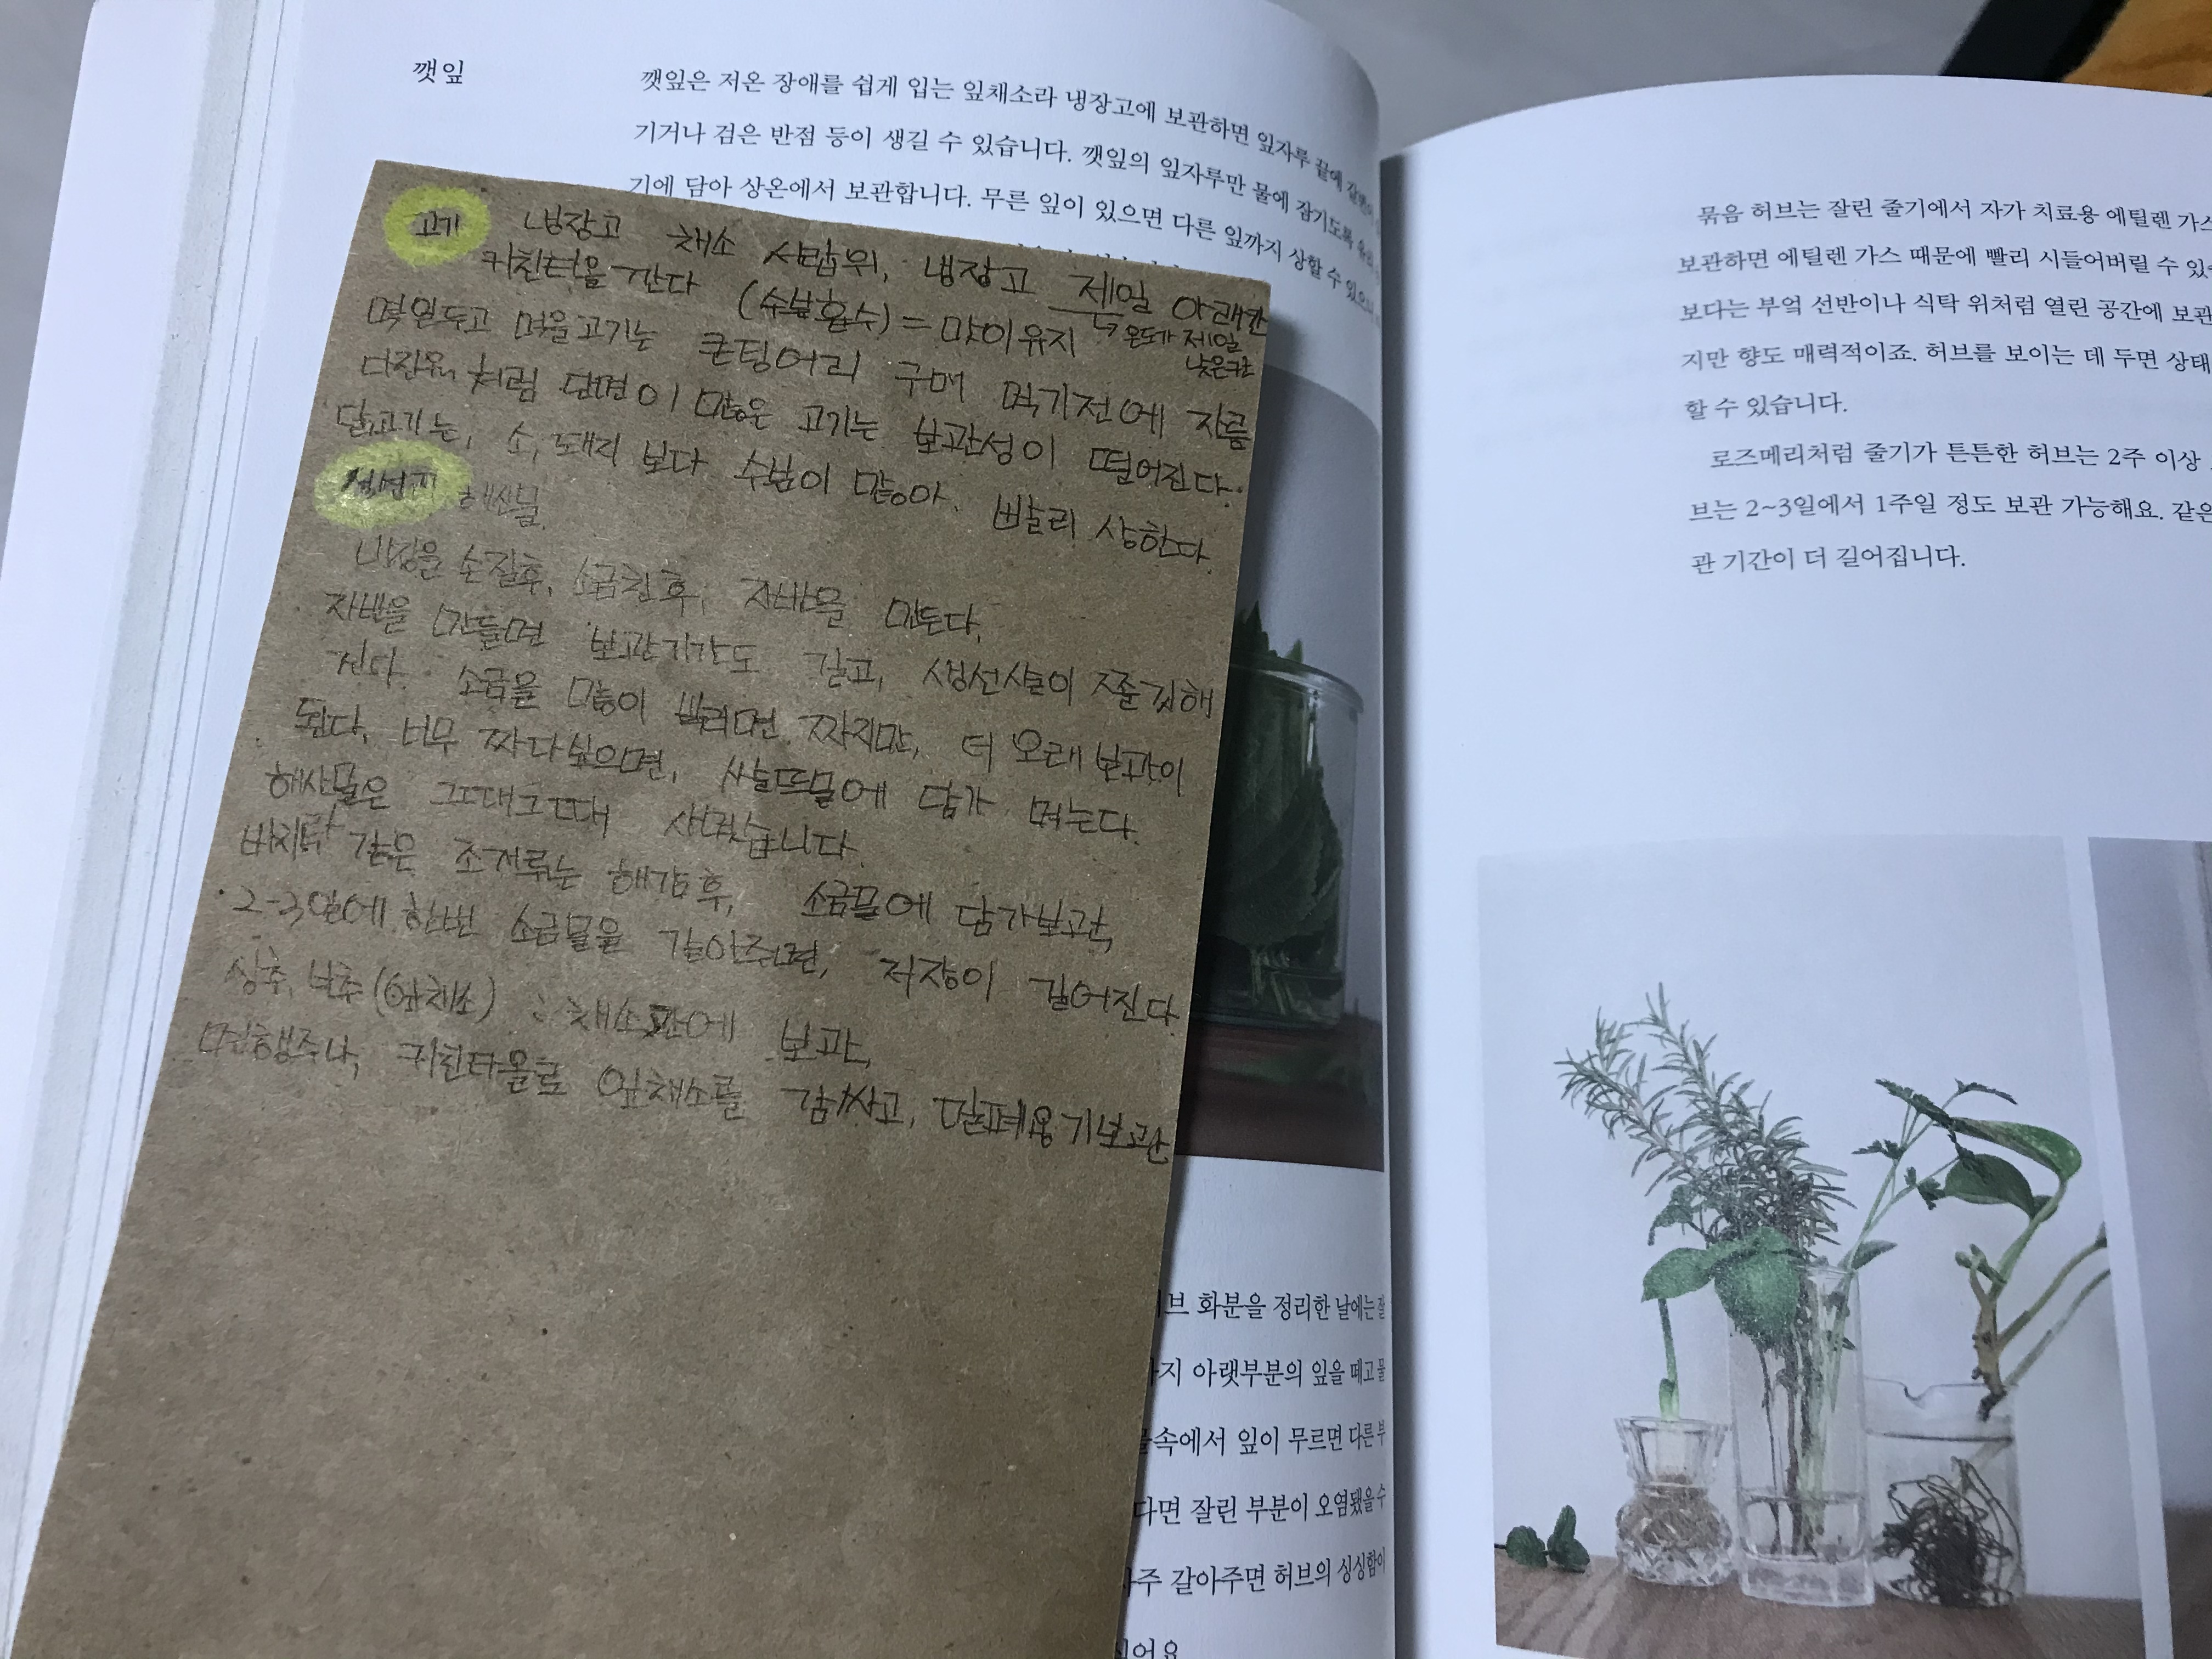 깻잎
깻잎은 저온 장애를 쉽게 입는 잎채소라 냉장고에 보관하면 잎자루 끝에
기거나 검은 반점 등이 생길 수 있습니다. 깻잎의 잎자루만 물에 잠기도록
기에 담아 상온에서 보관합니다. 무른 잎이 있으면 다른 잎까지 상할 수 있으
고기 냉장고 채소 서랍위, 냉장고 제일 아래칸
↳온도가 제일
낮은칸
키친타올 깐다 (수분흡수) = 맛이유지
며칠두고 먹을고기는 큰덩어리 구매 먹기전에 자름
다짐육처럼 단면이 많은 고기는 보관성이 떨어진다.
닭고기는, 소, 돼지 보다 수분이 많아. 빨리 상한다.
해산물.
내장은 손질후, 소금친후, 자반을 만든다.
자반을 만들면 보관기간도 길고, 생선살이 쫄깃해
진다. 소금을 많이 뿌리면 짜지만, 더 오래 보관이
된다. 너무 짜다싶으면, 쌀뜨물에 담가 먹는다.
해산물은 그때그때 사먹습니다.
바지락 같은 조개류는 해감후, 소금물에 담가보관,
·2-3일에 한번 소금물을 갈아주면, 저장이 길어진다.
상추, 부추 (잎채소) : 채소칸에 보관,
면행주나, 키친타올로 잎채소를 감싸고, 밀폐용기보관
브 화분을 정리한 날에는 잘
지 아랫부분의 잎을 떼고 물
속에서 잎이 무르면 다른 부
다면 잘린 부분이 오염됐을 수
주 갈아주면 허브의 싱싱함이
어요
묶음 허브는 잘린 줄기에서 자가 치료용 에틸렌 가스
보관하면 에틸렌 가스 때문에 빨리 시들어버릴 수 있
보다는 부엌 선반이나 식탁 위처럼 열린 공간에 보관
지만 향도 매력적이죠. 허브를 보이는 데 두면 상태
할 수 있습니다.
로즈메리처럼 줄기가 튼튼한 허브는 2주 이상
브는 2~3일에서 1주일 정도 보관 가능해요. 같은
관 기간이 더 길어집니다.